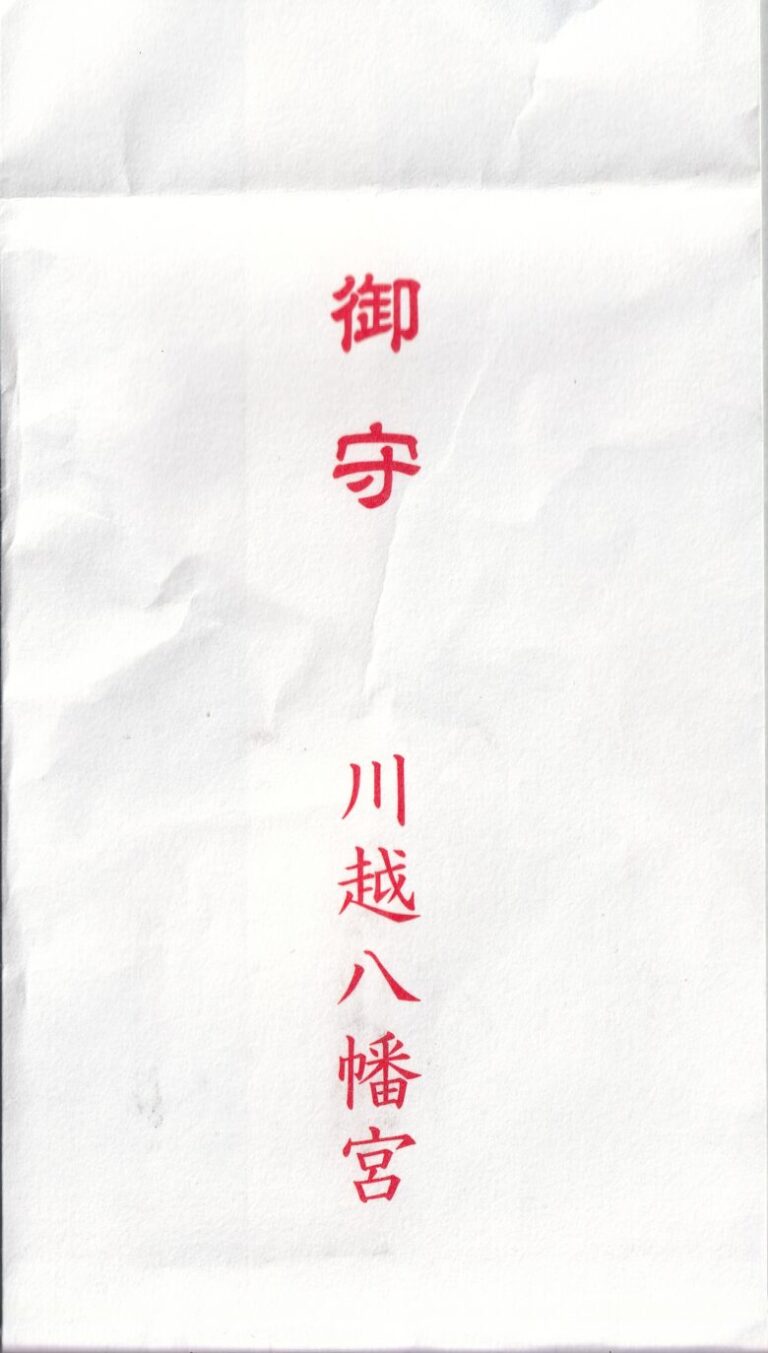 御守
川越八幡宮